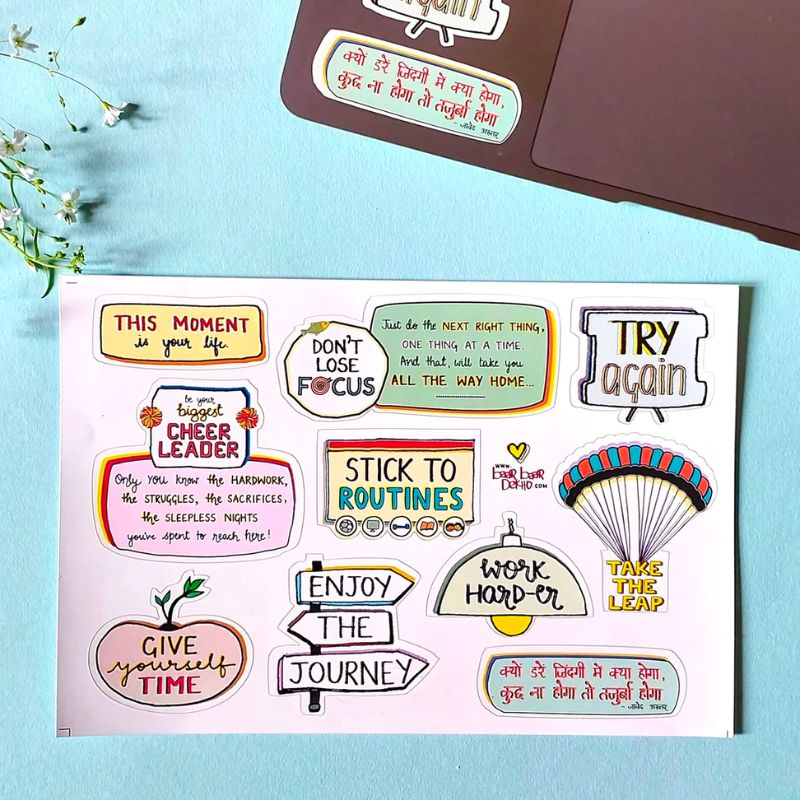 again
क्यों डरें ज़िंदगी में क्या होगा,
कुछ ना होगा तो तजुर्बा होगा
- जावेद अख़्तर
THIS MOMENT
is your life.
DON'T
LOSE
FOCUS
Just do the NEXT RIGHT THING,
ONE THING AT A TIME.
And that, will take you
ALL THE WAY HOME...
TRY
again
be your
biggest
CHEER
LEADER
Only you know the HARDWORK,
the STRUGGLES, the SACRIFICES,
the SLEEPLESS NIGHTS
you've spent to reach here!
STICK TO
ROUTINES
www.
baar baar
DEKHO.com
TAKE
THE
LEAP
GIVE
yourself
TIME
ENJOY
THE
JOURNEY
WORK
HARD-ER
क्यों डरें ज़िंदगी में क्या होगा,
कुछ ना होगा तो तजुर्बा होगा
- जावेद अख़्तर